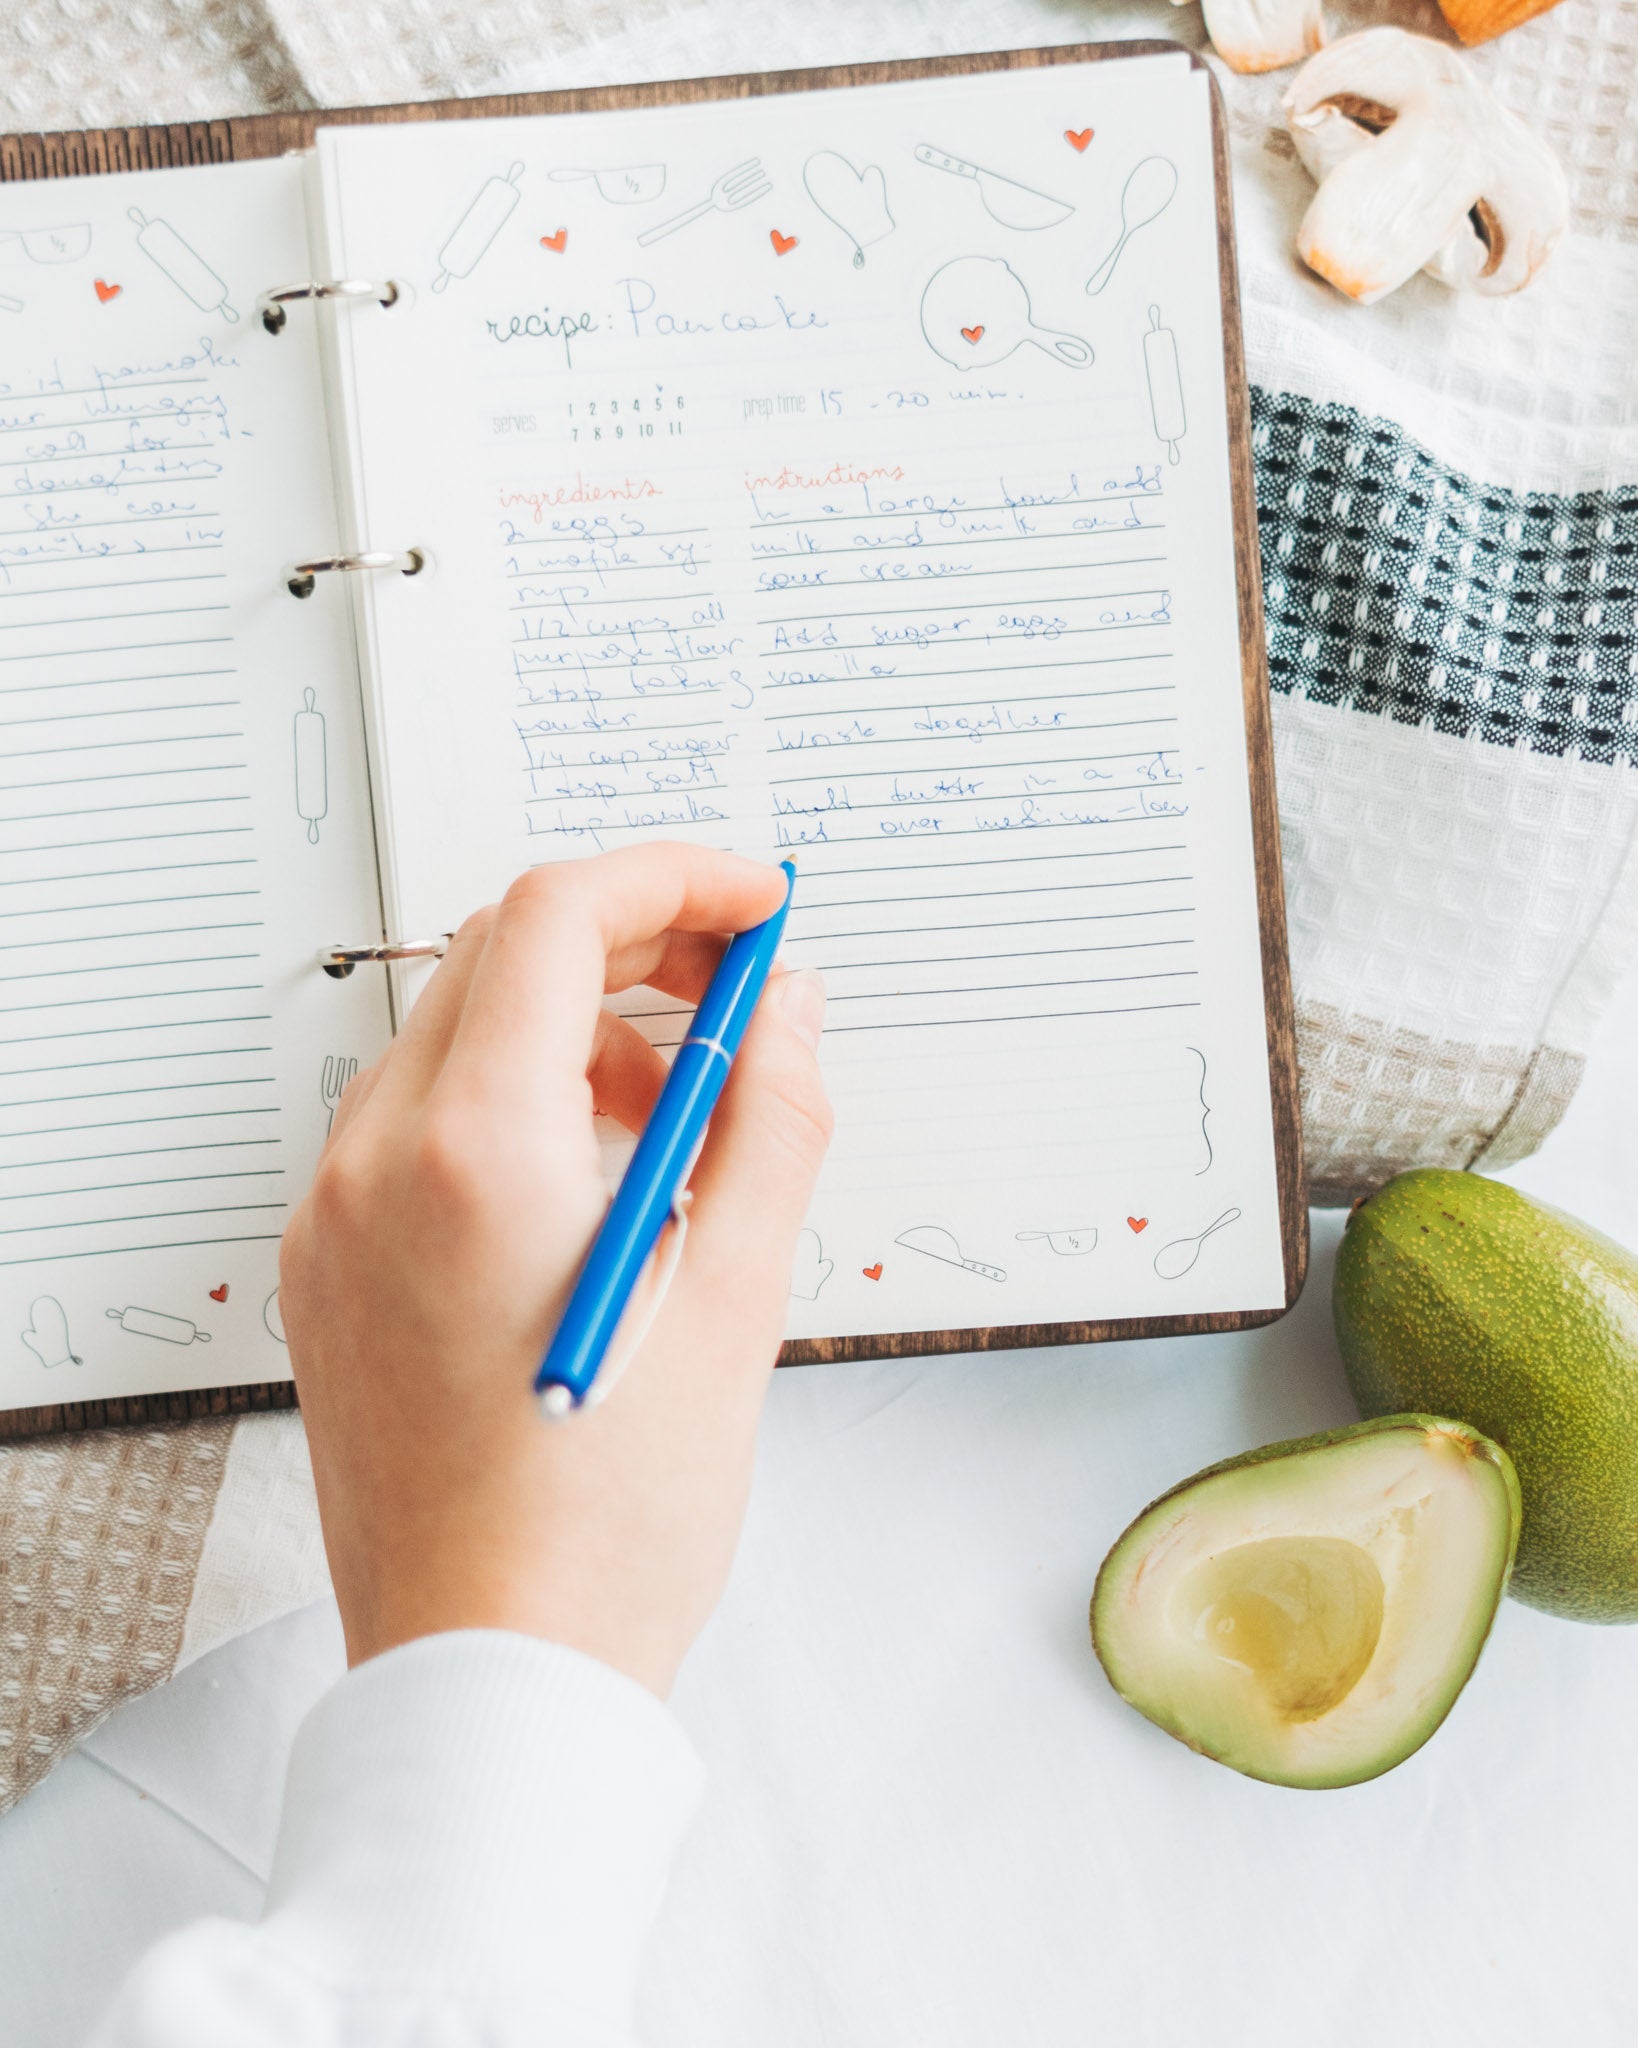 1/2
it pancake
hungry
call for it-
daughters
she can
in
1/2
recipe: Pancake
serves 1 2 3 4 5 6
7 8 9 10 11
prep time 15 - 20 min.
ingredients
2 eggs
1 maple sy-
rup
1/2 cups all
purpose flour
2 tsp baking
powder
1/4 cup sugar
1 tsp salt
1 tsp vanilla
instructions
In a large bowl add
milk and milk and
sour cream
Add sugar, eggs and
vanilla
Wisk together
Melt butter in a skil-
let over medium-low
1/2